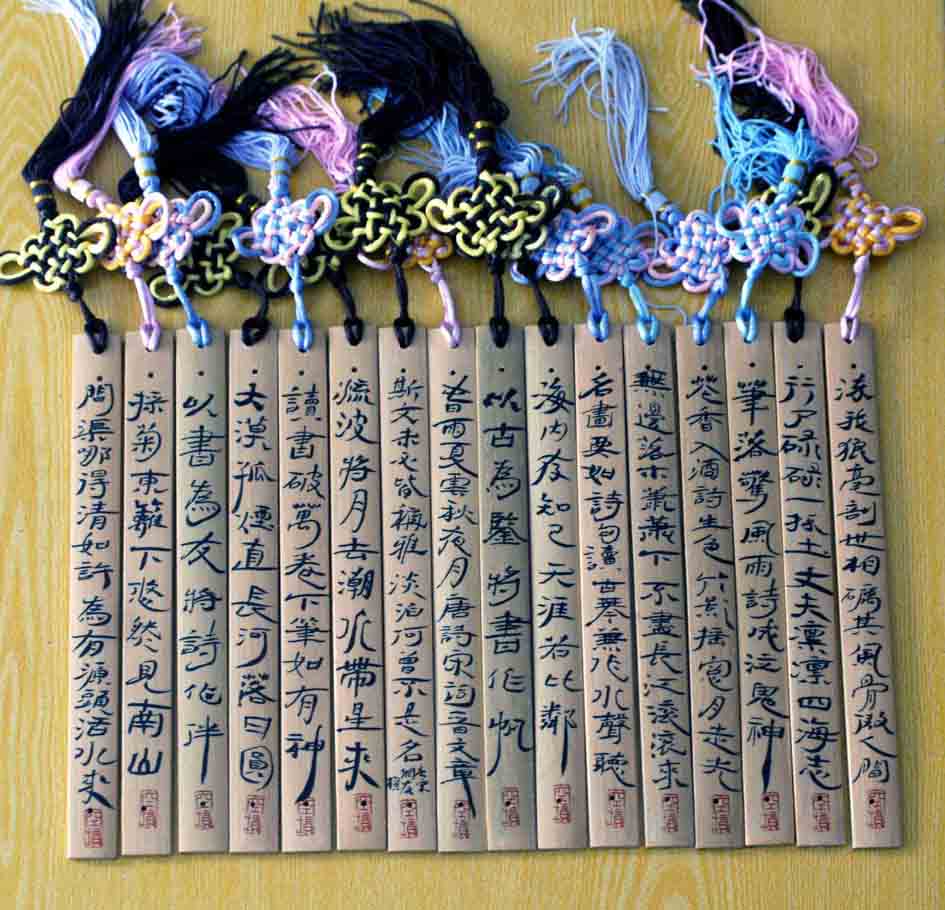 我狼毫剖世相礪其風骨啟人間
行了碌碌一抔土丈夫凛凛四海志
筆落驚風雨詩成泣鬼神
花香入酒詩生色竹影搖窗月走光
無邊落木蕭蕭下不盡長江滾滾來
名畫要如詩句讀古琴無作水聲聽
海内存知己天涯若比鄰
以古為鑒將書作帆
春雨夏雲秋夜月唐詩宋詞晉文章
斯文未必皆稱雅淡泊何曾不是名
流波將月去潮水帶星來
讀書破萬卷下筆如有神
大漠孤煙直長河落日圓
以書為友將詩作伴
採菊東籬下悠然見南山
問渠哪得清如許為有源頭活水來